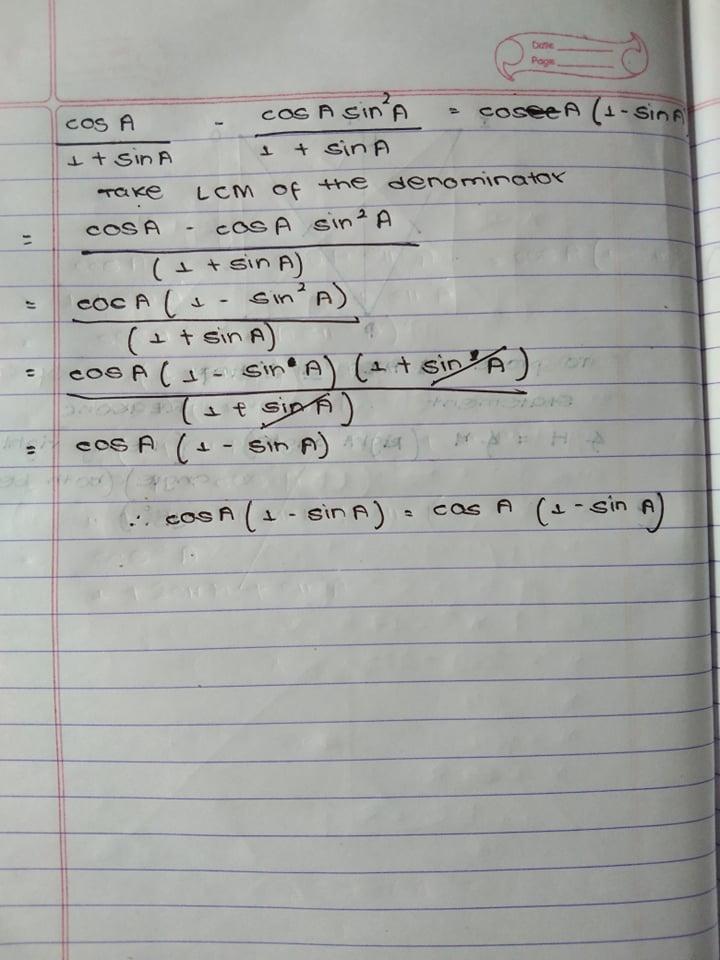 Date
Page
cos A / 1 + sin A - cos A sin²A / 1 + sin A = cos A (1 - sin A
Take LCM of the denominator
= cos A - cos A sin² A / (1 + sin A)
= coc A (1 - sin² A) / (1 + sin A)
= cos A (1 - sin A) (1 + sin A) / (1 + sin A)
= cos A (1 - sin A)
∴ cos A (1 - sin A) = cos A (1 - sin A)